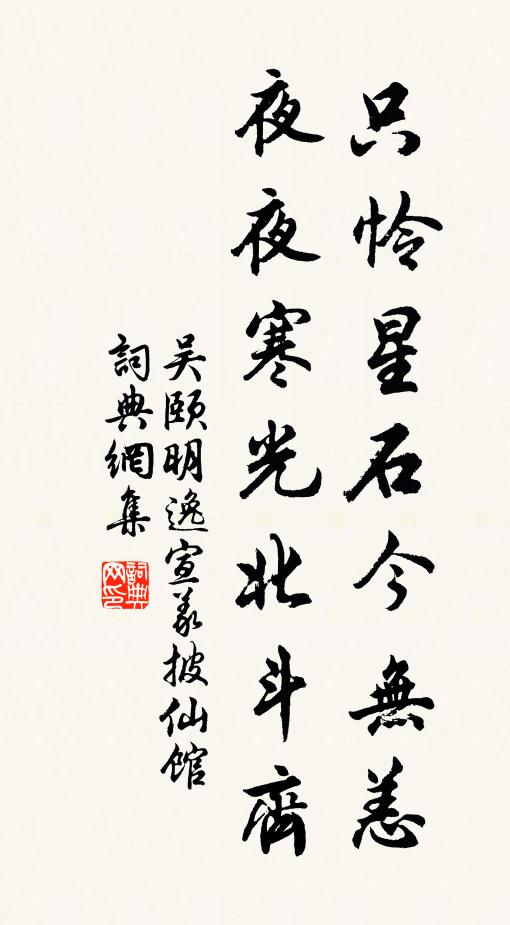 只怜星石今無恙
夜夜寒光北斗齊
吴颐明逸宣義披仙館
詞典網集
詞典网印